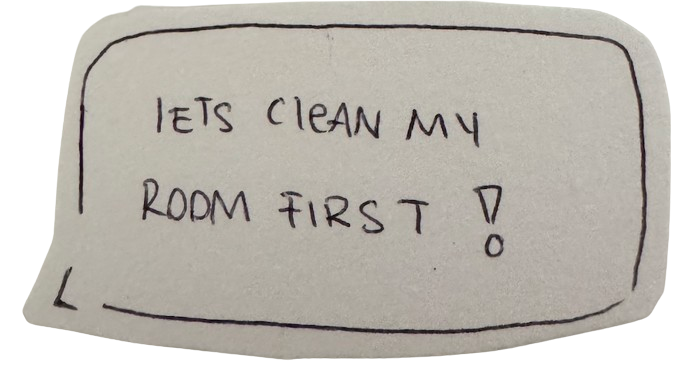 lETS ClEAN MY
ROOM FIRST !